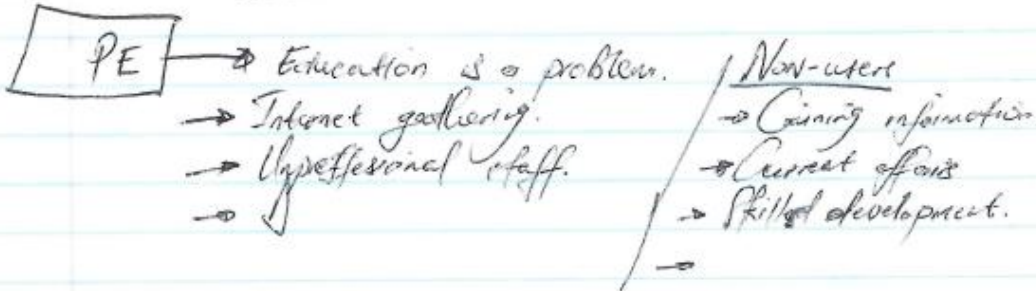 PE → Education is a problem.
→ Internet gathering.
→ Unproffesional staff.
→
Non-users
→ Gaining information
→ Current affairs
→ Skilled development.
→